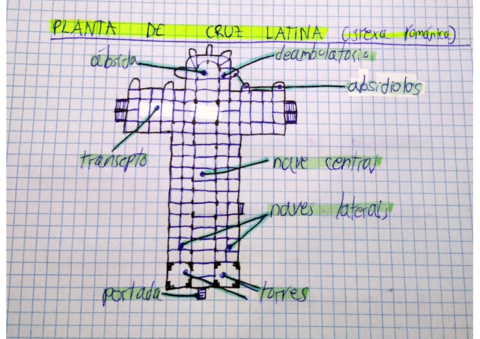 PLANTA DE CRUZ LATINA (igrexa románica)
ábsida
deambulatorio
absidiolos
transepto
nave central
naves laterals
portada
torres